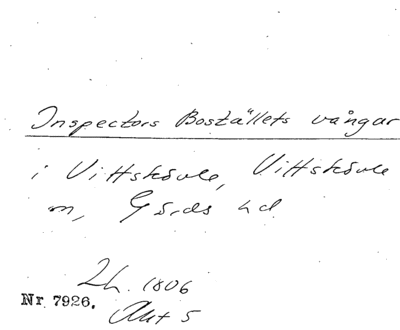 Inspectors Boställets vångar
i Vittskövle, Vittskövle
m, Gärds hd
Lh. 1806
Nr 7926.
Akt 5